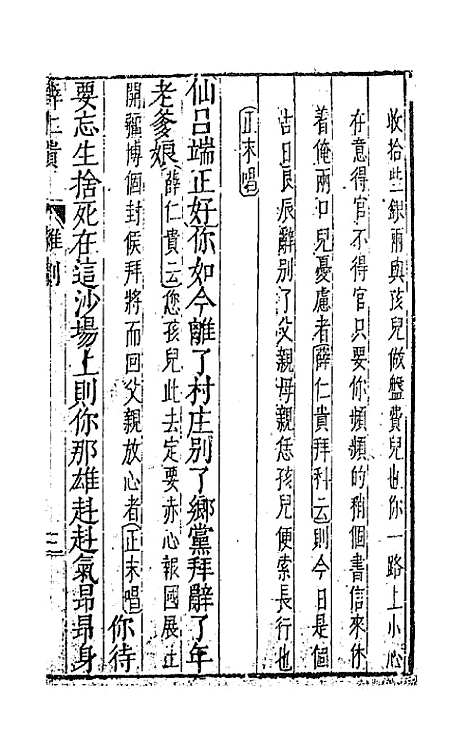 收拾些銀兩與孩兒做盤費兒也你一路上小心
在意得官不得官只要你頻頻的稍個書信來休
着俺兩口兒憂慮者薛仁貴拜科云則今日是個
吉日良辰辭別了父親母親恁孩兒便索長行也
正末唱
仙呂端正好你如今離了村庄別了鄉黨拜辭了年
老爹娘薛仁貴云您孩兒此去定要赤心報國展土
開疆博個封侯拜將而回父親放心者正末唱你待
要忘生捨死在這沙場上則你那雄赳赳氣昂昂身
薛仁貴 雜劇 二